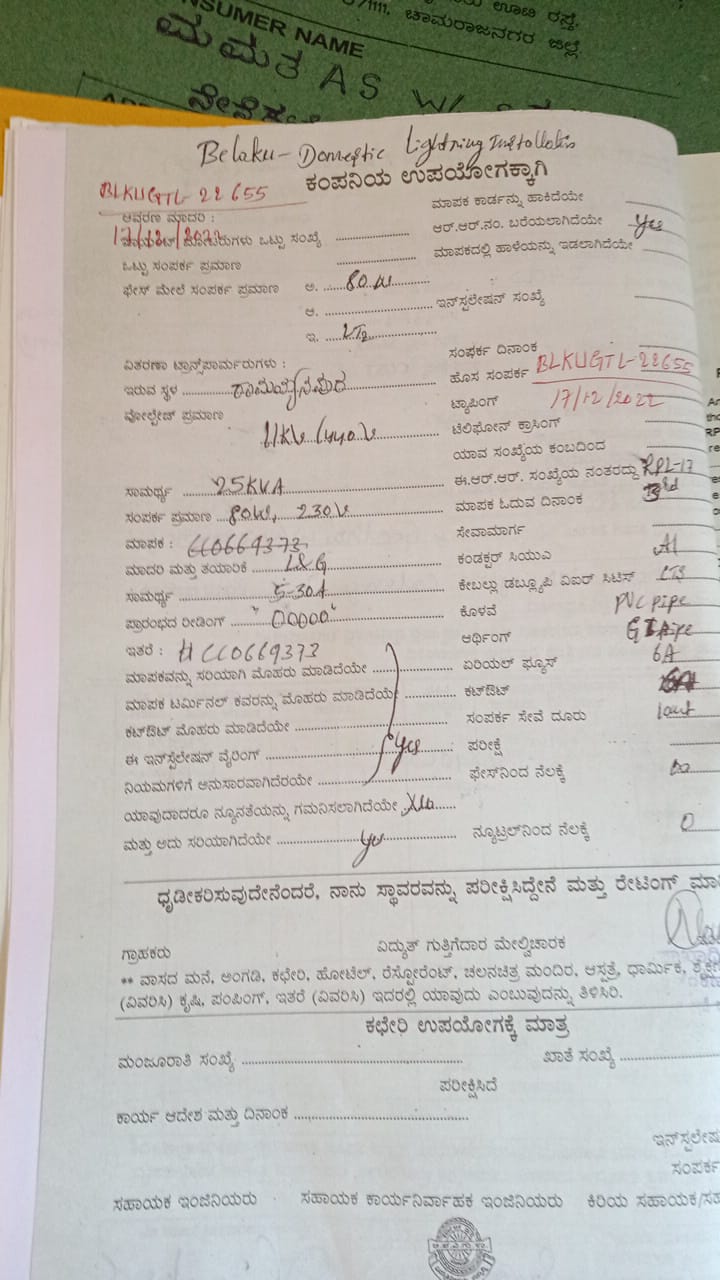 ಊಟಿ ರಸ್ತೆ,
/1111, ಚಾಮರಾಜನಗರ ಜಿಲ್ಲೆ
NSUMER NAME
ಮಮತ AS W/
Belaku - Domestic Lightning Installation
ಕಂಪನಿಯ ಉಪಯೋಗಕ್ಕಾಗಿ
BLKUGTL-22655
ಮಾಪಕ ಕಾರ್ಡನ್ನು ಹಾಕಿದೆಯೇ
ಆವರಣ ಮಾದರಿ :
ಆರ್.ಆರ್.ನಂ. ಬರೆಯಲಾಗಿದೆಯೇ Yes
17/12/2022
ಒಟ್ಟು ಸಂಖ್ಯೆ
ಮಾಪಕದಲ್ಲಿ ಹಾಳೆಯನ್ನು ಇಡಲಾಗಿದೆಯೇ
ಒಟ್ಟು ಸಂಪರ್ಕ ಪ್ರಮಾಣ
ಫೇಸ್ ಮೇಲೆ ಸಂಪರ್ಕ ಪ್ರಮಾಣ ಅ. 80 W
ಆ. ಇನ್‌ಸ್ಟಲೇಷನ್ ಸಂಖ್ಯೆ
ಇ. LT2
ವಿತರಣಾ ಟ್ರಾನ್ಸ್‌ಪಾರ್ಮರುಗಳು :
ಸಂಪರ್ಕ ದಿನಾಂಕ
ಇರುವ ಸ್ಥಳ
ಹೊಸ ಸಂಪರ್ಕ BLKUGTL-22655
ವೋಲ್ಟೇಜ್ ಪ್ರಮಾಣ
ಟ್ಯಾಪಿಂಗ್ 17/12/2022
11KV/440V
ಟೆಲಿಫೋನ್ ಕ್ರಾಸಿಂಗ್
ಯಾವ ಸಂಖ್ಯೆಯ ಕಂಬದಿಂದ
ಸಾಮರ್ಥ್ಯ 25KVA
ಈ.ಆರ್.ಆರ್. ಸಂಖ್ಯೆಯ ನಂತರದ್ದು RPL-17
ಸಂಪರ್ಕ ಪ್ರಮಾಣ 80W, 230V
ಮಾಪಕ ಓದುವ ದಿನಾಂಕ 3rd
ಮಾಪಕ : CC0669373
ಸೇವಾಮಾರ್ಗ
ಮಾದರಿ ಮತ್ತು ತಯಾರಿಕೆ L&G
ಕಂಡಕ್ಟರ್ ಸಿಯುಎ Al
ಸಾಮರ್ಥ್ಯ 5-30A
ಕೇಬಲ್ಲು ಡಬ್ಲ್ಯೂಪಿ ವಿಐರ್ ಸಿಟಿಸ್
ಪ್ರಾರಂಭದ ರೀಡಿಂಗ್ "00000"
ಕೊಳವೆ PVC pipe
ಇತರೆ : HCC0669373
ಆರ್ಥಿಂಗ್ GI Pipe
ಮಾಪಕವನ್ನು ಸರಿಯಾಗಿ ಮೊಹರು ಮಾಡಿದೆಯೇ
ಏರಿಯಲ್ ಫ್ಯೂಸ್ 6A
ಮಾಪಕ ಟರ್ಮಿನಲ್ ಕವರನ್ನು ಮೊಹರು ಮಾಡಿದೆಯೇ
ಕಟ್‌ಔಟ್ 6A
ಕಟ್‌ಔಟ್ ಮೊಹರು ಮಾಡಿದೆಯೇ
ಸಂಪರ್ಕ ಸೇವೆ ದೂರು
ಈ ಇನ್‌ಸ್ಟೆಲೇಷನ್ ವೈರಿಂಗ್ Yes
ಪರೀಕ್ಷೆ
ನಿಯಮಗಳಿಗೆ ಅನುಸಾರವಾಗಿದೆರಯೇ
ಫೇಸ್‌ನಿಂದ ನೆಲಕ್ಕೆ
ಯಾವುದಾದರೂ ನ್ಯೂನತೆಯನ್ನು ಗಮನಿಸಲಾಗಿದೆಯೇ No
ಮತ್ತು ಅದು ಸರಿಯಾಗಿದೆಯೇ Yes
ನ್ಯೂಟ್ರಲ್‌ನಿಂದ ನೆಲಕ್ಕೆ 0
ಧೃಡೀಕರಿಸುವುದೇನೆಂದರೆ, ನಾನು ಸ್ಥಾವರವನ್ನು ಪರೀಕ್ಷಿಸಿದ್ದೇನೆ ಮತ್ತು ರೇಟಿಂಗ್
ಗ್ರಾಹಕರು ವಿದ್ಯುತ್ ಗುತ್ತಿಗೆದಾರ ಮೇಲ್ವಿಚಾರಕ
** ವಾಸದ ಮನೆ, ಅಂಗಡಿ, ಕಛೇರಿ, ಹೋಟೆಲ್, ರೆಸ್ಟೋರೆಂಟ್, ಚಲನಚಿತ್ರ ಮಂದಿರ, ಆಸ್ಪತ್ರೆ, ಧಾರ್ಮಿಕ,
(ವಿವರಿಸಿ) ಕೃಷಿ, ಪಂಪಿಂಗ್, ಇತರೆ (ವಿವರಿಸಿ) ಇದರಲ್ಲಿ ಯಾವುದು ಎಂಬುವುದನ್ನು ತಿಳಿಸಿರಿ.
ಕಛೇರಿ ಉಪಯೋಗಕ್ಕೆ ಮಾತ್ರ
ಮಂಜೂರಾತಿ ಸಂಖ್ಯೆ ಖಾತೆ ಸಂಖ್ಯೆ
ಪರೀಕ್ಷಿಸಿದೆ
ಕಾರ್ಯ ಆದೇಶ ಮತ್ತು ದಿನಾಂಕ
ಇನ್‌ಸ್ಟಲೇಷ
ಸಂಪರ್ಕ
ಸಹಾಯಕ ಇಂಜಿನಿಯರು ಸಹಾಯಕ ಕಾರ್ಯನಿರ್ವಾಹಕ ಇಂಜಿನಿಯರು ಕಿರಿಯ ಸಹಾಯಕ/ಸಹ